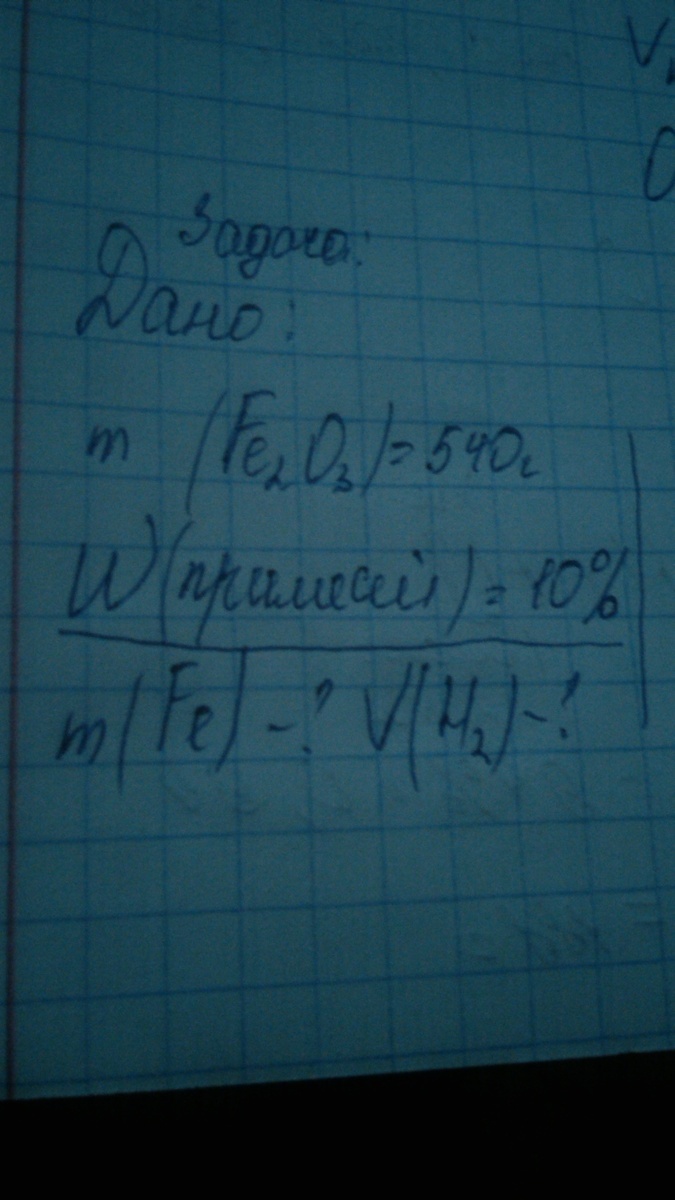 Задача:
Дано:
m (Fe₂O₃) = 540г
W(примесей) = 10%
m(Fe) - ? V(H₂) - ?